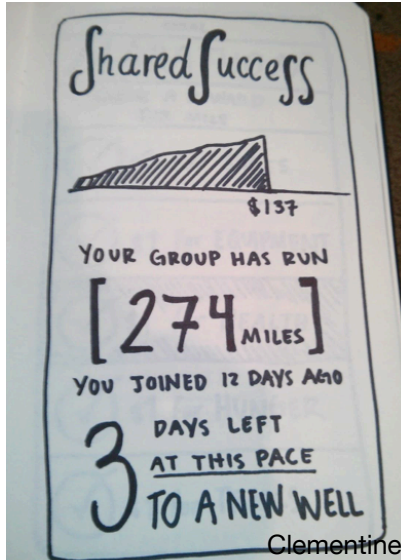 Shared Success
$137
YOUR GROUP HAS RUN
[274 MILES]
YOU JOINED 12 DAYS AGO
3 DAYS LEFT
AT THIS PACE
TO A NEW WELL
Clementine